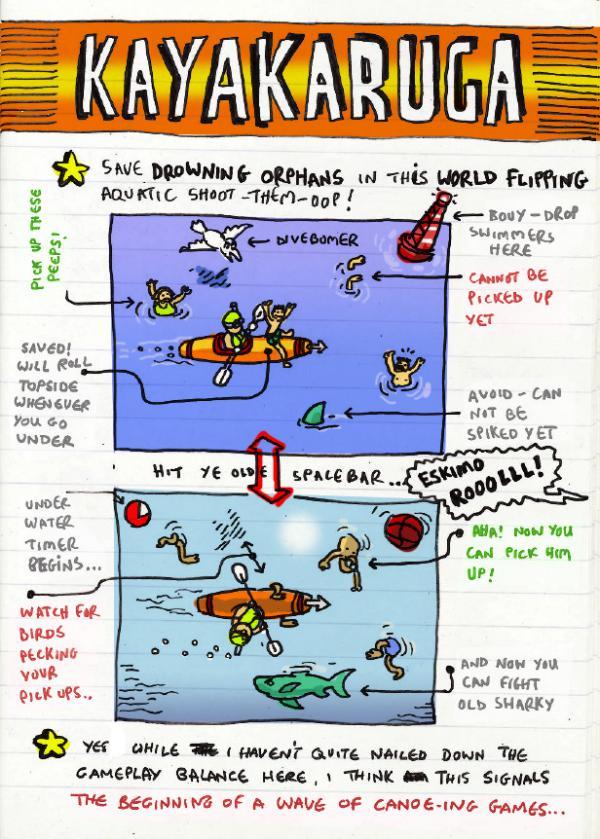 KAYAKARUGA
SAVE DROWNING ORPHANS IN THIS WORLD FLIPPING
AQUATIC SHOOT-THEM-OOP!
PICK UP THESE
PEEPS!
DIVEBOMER
BOUY-DROP
SWIMMERS
HERE
CANNOT BE
PICKED UP
YET
SAVED!
WILL ROLL
TOPSIDE
WHENEVER
YOU GO
UNDER
AVOID-CAN
NOT BE
SPIKED YET
HIT YE OLDE SPACEBAR...
ESKIMO
ROOOLLL!
UNDER
WATER
TIMER
BEGINS...
AHA! NOW YOU
CAN PICK HIM
UP!
WATCH FOR
BIRDS
PECKING
YOUR
PICK UPS..
AND NOW YOU
CAN FIGHT
OLD SHARKY
YES WHILE I HAVEN'T QUITE NAILED DOWN THE
GAMEPLAY BALANCE HERE, I THINK THIS SIGNALS
THE BEGINNING OF A WAVE OF CANOE-ING GAMES...